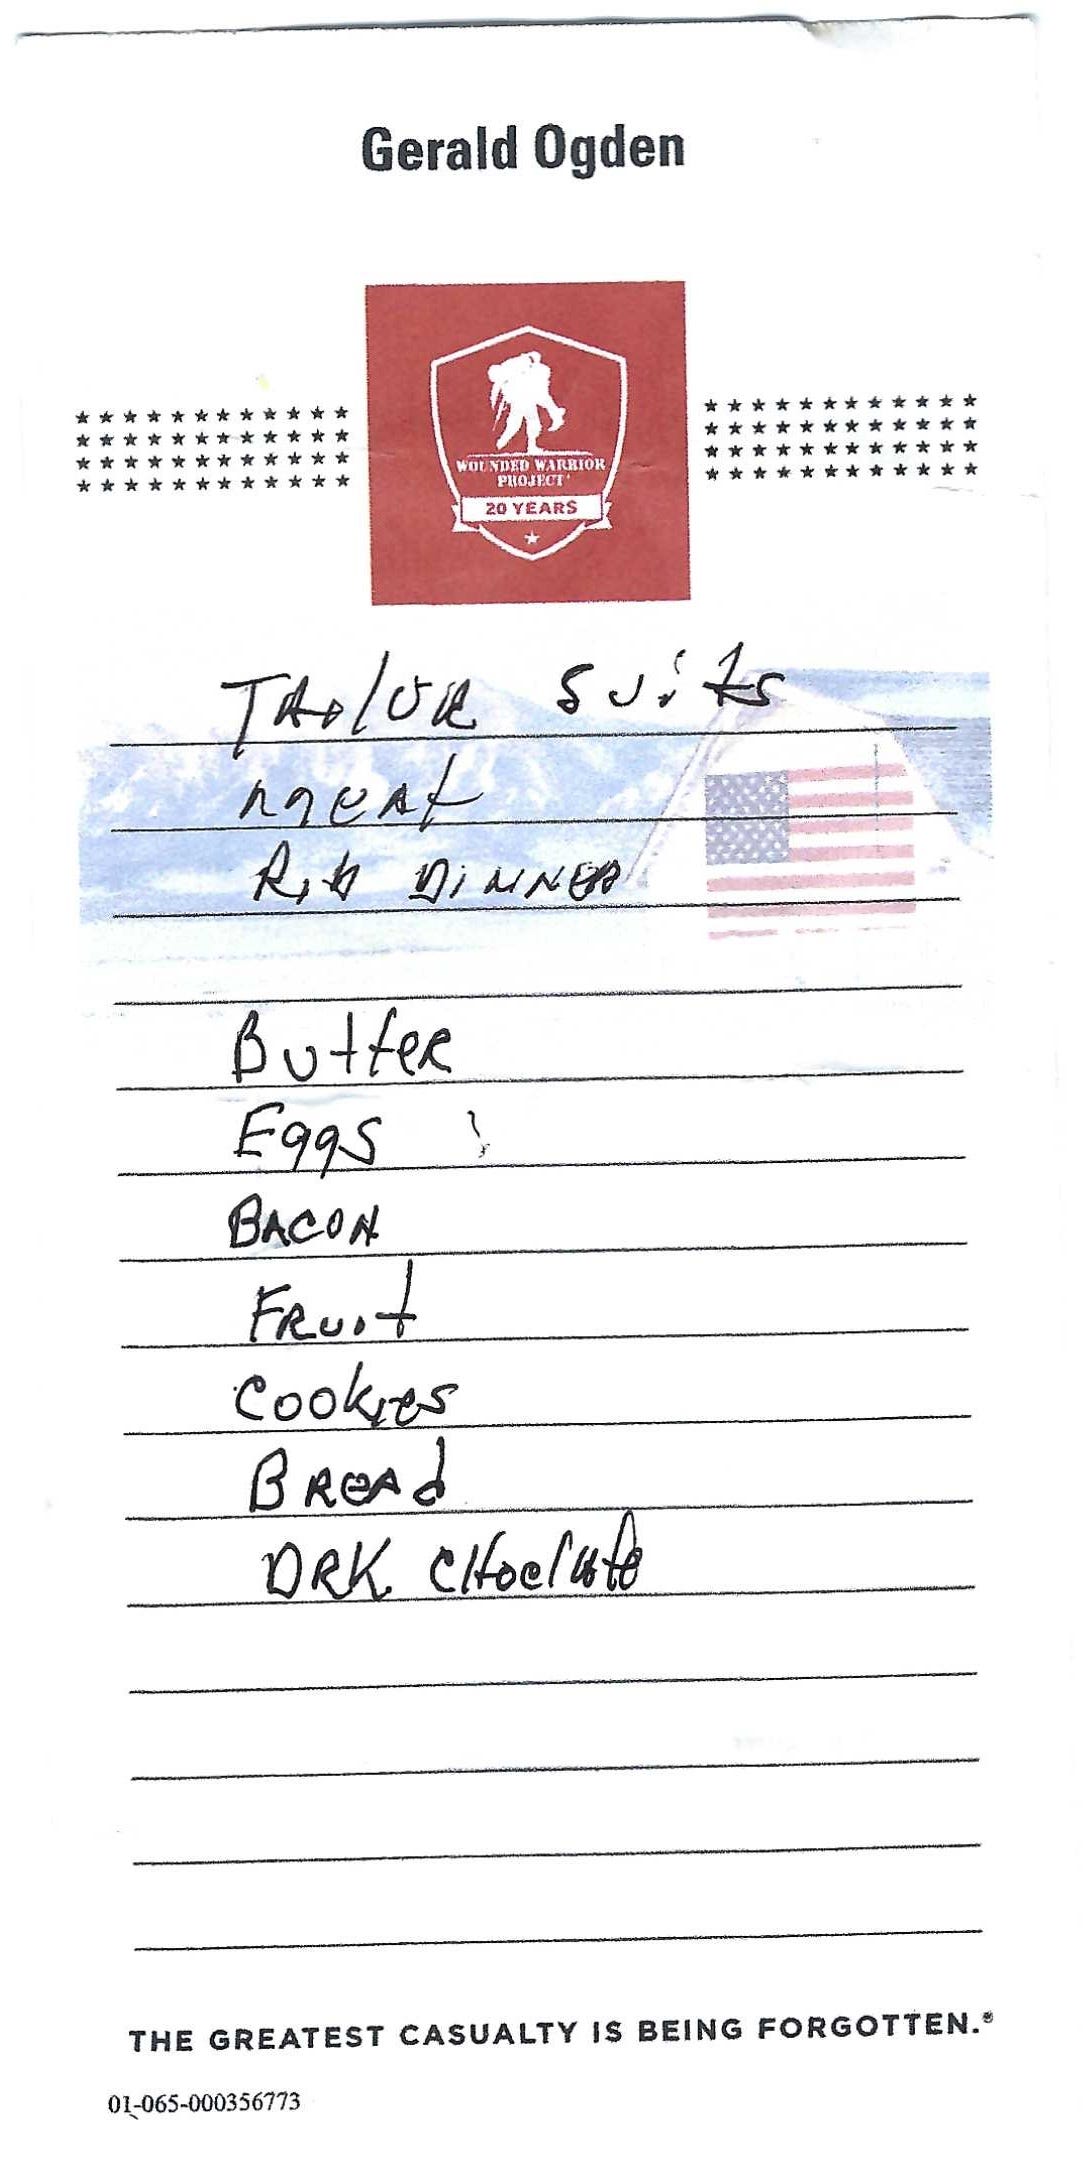 Gerald Ogden
WOUNDED WARRIOR
PROJECT
20 YEARS
TAilUR Suits
Rib DINNER
Butter
Eggs
BACON
FRuit
Cookies
BREAd
DRK CHoclate
THE GREATEST CASUALTY IS BEING FORGOTTEN.®
01-065-000356773